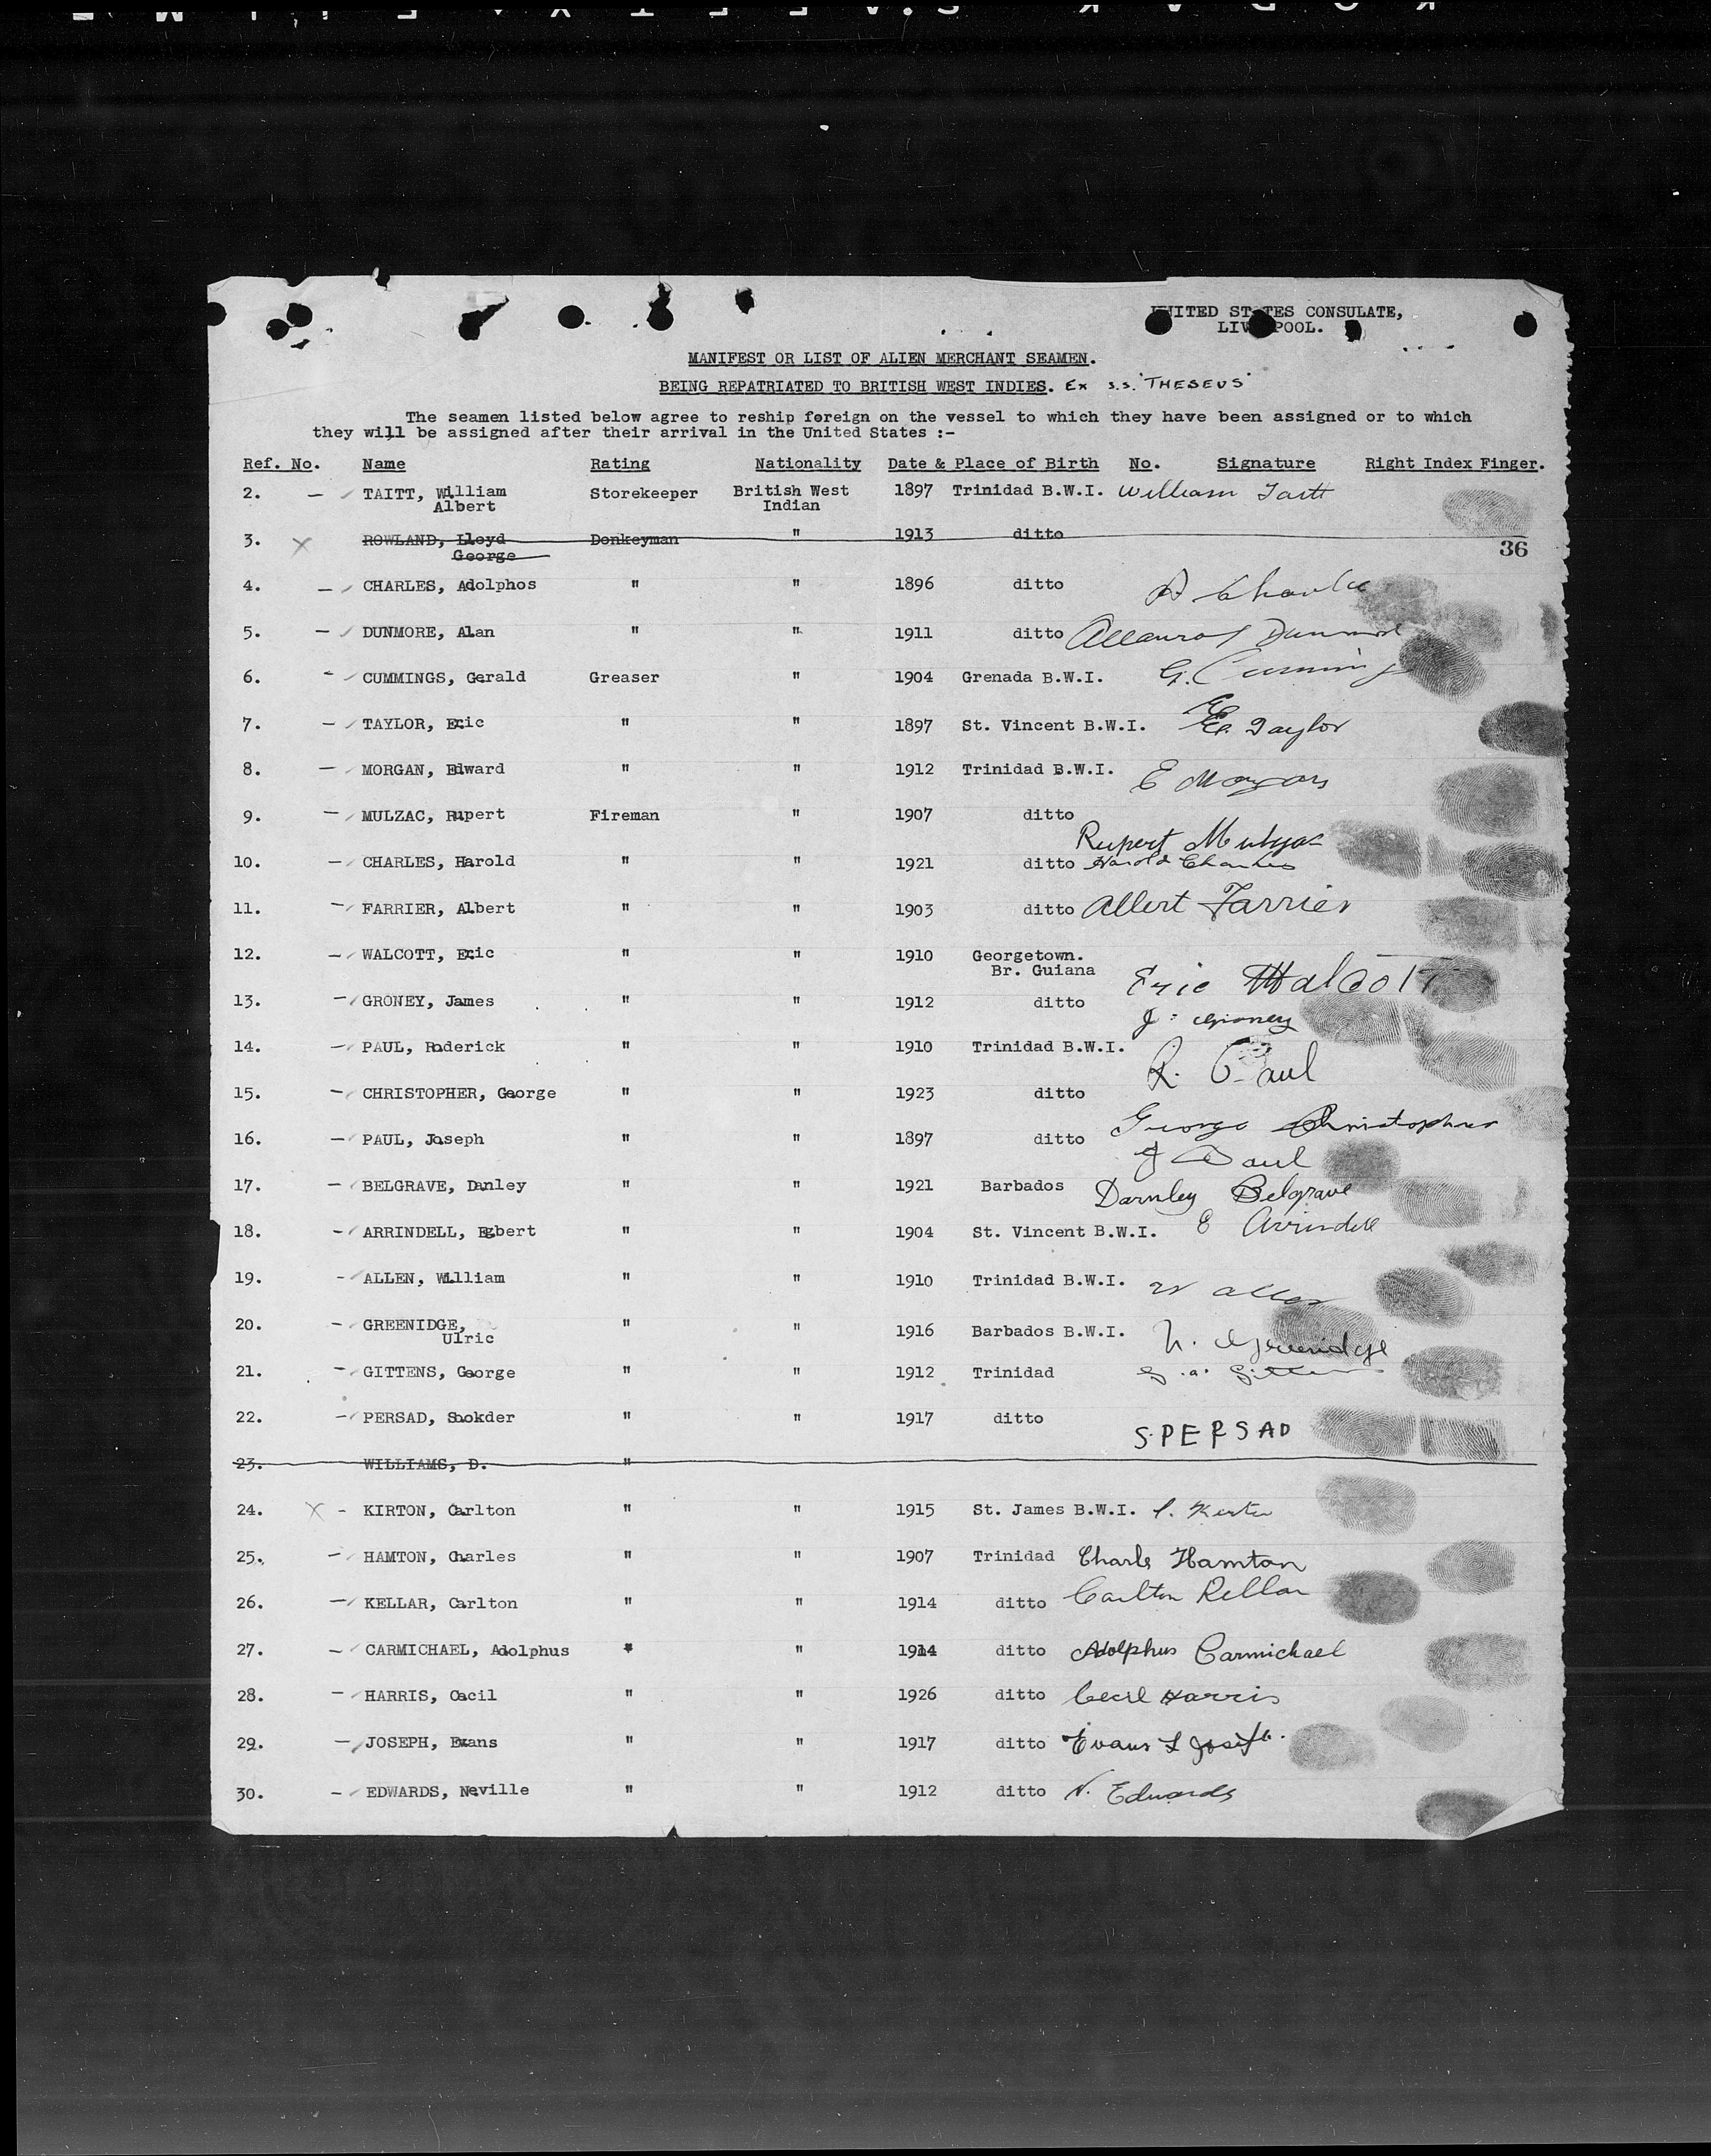 UNITED STATES CONSULATE,
LIVERPOOL.
MANIFEST OR LIST OF ALIEN MERCHANT SEAMEN.
BEING REPATRIATED TO BRITISH WEST INDIES. Ex s.s. 'THESEUS'
The seamen listed below agree to reship foreign on the vessel to which they have been assigned or to which
they will be assigned after their arrival in the United States :-
Ref. No. Name Rating Nationality Date & Place of Birth No. Signature Right Index Finger.
2. — TAITT, William Storekeeper British West 1897 Trinidad B.W.I. William Taitt
Albert Indian
3. X ROWLAND, Lloyd Donkeyman " 1913 ditto
George
36
4. — CHARLES, Adolphos " " 1896 ditto A Charles
5. — DUNMORE, Alan " " 1911 ditto Dunmore
6. - CUMMINGS, Gerald Greaser " 1904 Grenada B.W.I. G. Cummings
7. — TAYLOR, Eric " " 1897 St. Vincent B.W.I. E. Taylor
8. — MORGAN, Edward " " 1912 Trinidad B.W.I. E Morgan
9. — MULZAC, Rupert Fireman " 1907 ditto Rupert Mulzac
10. — CHARLES, Harold " " 1921 ditto Harold Charles
11. — FARRIER, Albert " " 1903 ditto Albert Farrier
12. — WALCOTT, Eric " " 1910 Georgetown. Eric Walcott
Br. Guiana
13. — GRONEY, James " " 1912 ditto J. Groney
14. — PAUL, Roderick " " 1910 Trinidad B.W.I. R. Paul
15. — CHRISTOPHER, George " " 1923 ditto George Christopher
16. — PAUL, Joseph " " 1897 ditto J Paul
17. — BELGRAVE, Danley " " 1921 Barbados Darnley Belgrave
18. — ARRINDELL, Egbert " " 1904 St. Vincent B.W.I. E Arrindell
19. - ALLEN, William " " 1910 Trinidad B.W.I. W Allen
20. — GREENIDGE, " " 1916 Barbados B.W.I. U. Greenidge
Ulric
21. — GITTENS, George " " 1912 Trinidad G. a. Gittens
22. — PERSAD, Sookder " " 1917 ditto S. PERSAD
23. WILLIAMS, D. "
24. X - KIRTON, Carlton " " 1915 St. James B.W.I. C. Kirton
25. — HAMTON, Charles " " 1907 Trinidad Charls Hamton
26. — KELLAR, Carlton " " 1914 ditto Carlton Kellar
27. — CARMICHAEL, Adolphus " " 1914 ditto Adolphus Carmichael
28. — HARRIS, Cecil " " 1926 ditto Cecil Harris
29. — JOSEPH, Evans " " 1917 ditto Evans L Joseph.
30. — EDWARDS, Neville " " 1912 ditto N. Edwards